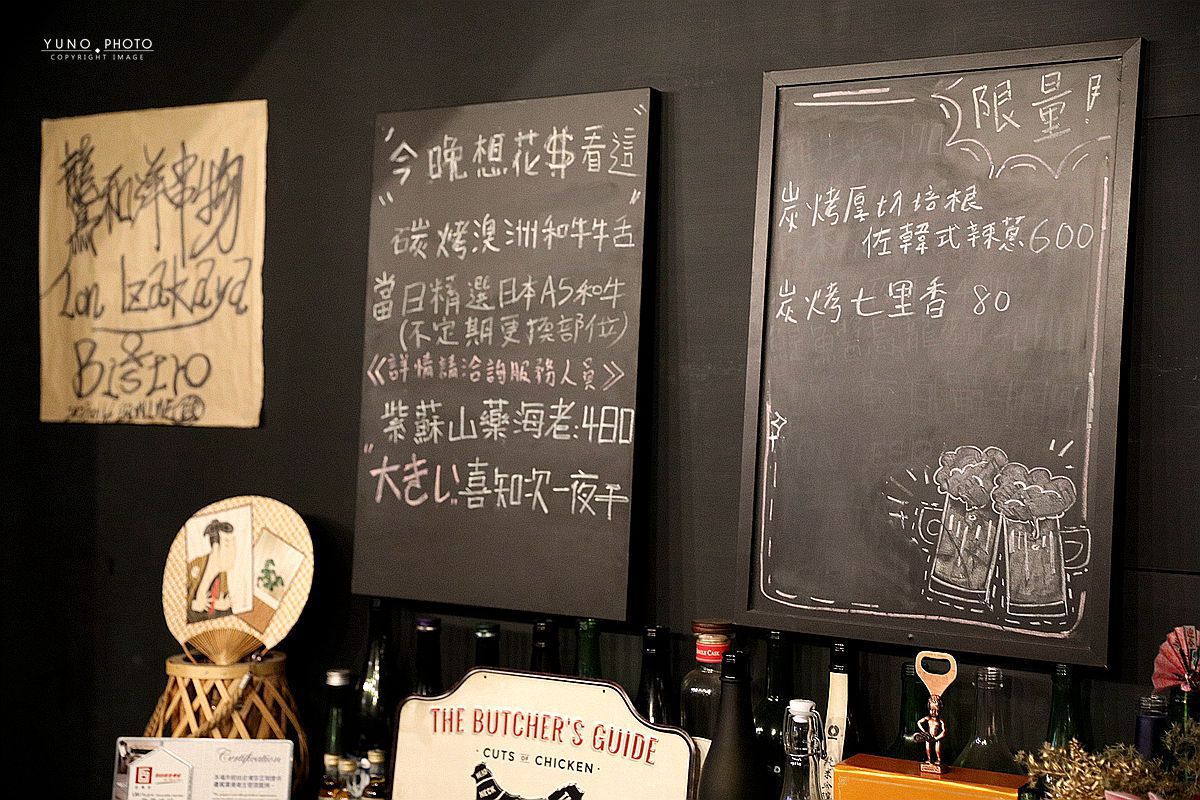 YUNO PHOTO
COPYRIGHT IMAGE
和洋串物
Izakaya
Bistro
"今晚想花$看這"
碳烤澳洲和牛牛舌
當日精選日本A5和牛
(不定期更換部位)
《詳情請洽詢服務人員》
紫蘇山藥海老:480
"大きい"喜知次一夜干
限量!
炭烤厚切培根
佐韓式辣蔥600
炭烤七里香 80
THE BUTCHER'S GUIDE
CUTS OF CHICKEN
NECK
Certification